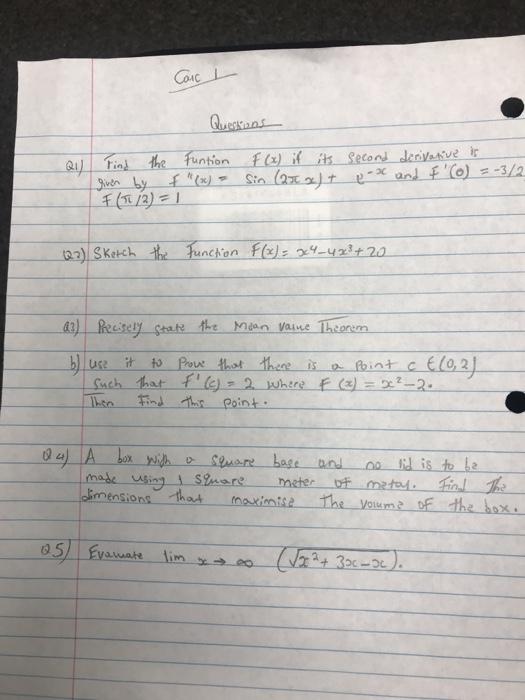 Calc 1
Questions
Q1) Find the Funtion f(x) if its second derivative is
given by f"(x) = sin (2πx) + e^-x and f'(0) = -3/2
f(π/2) = 1
Q2) Sketch the function f(x) = x⁴-4x³+20
Q3) Precisely state the Mean Value Theorem
b) use it to Prove that there is a Point c ∈ (0,2)
Such that f'(c) = 2 where f(x) = x²-2.
Then Find this point.
Q4) A box with a square base and no lid is to be
made using 1 square meter of metal. Find The
dimensions that maximise The volume of the box.
Q5) Evaluate lim x→∞ (√x²+3x-x).